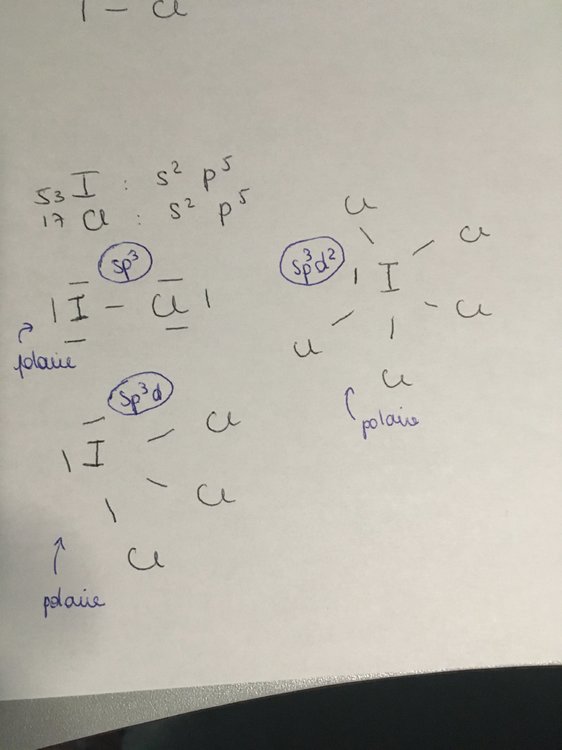 I – Cl
53 I : s² p⁵
17 Cl : s² p⁵
sp³
| I – Cl |
polaire
sp³d²
Cl
Cl
| I
Cl
Cl
Cl
polaire
sp³d
| I
Cl
Cl
Cl
polaire